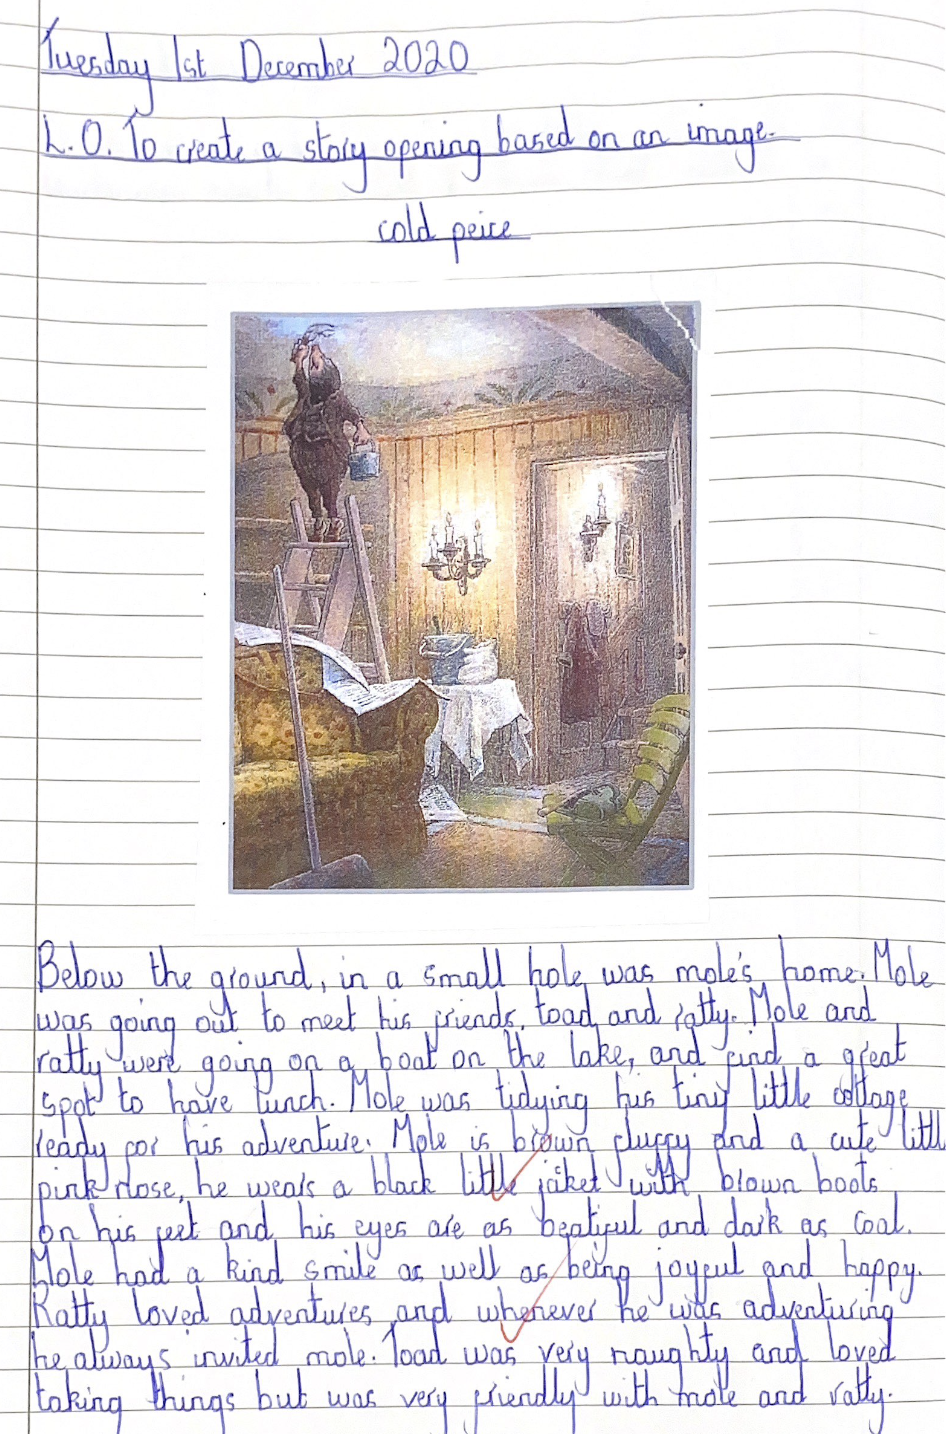 Tuesday 1st December 2020
L.O. To create a story opening based on an image.
cold peice
Below the ground, in a small hole was mole's home. Mole
was going out to meet his friends, toad and ratty. Mole and
ratty were going on a boat on the lake, and find a great
spot to have lunch. Mole was tidying his tiny little cottage
ready for his adventure. Mole is brown fluffy and a cute little
pink nose, he wears a black little jaket with brown boots
on his feet and his eyes are as beatiful and dark as coal.
Mole had a kind smile as well as being joyful and happy.
Ratty loved adventures and whenever he was adventuring
he always invited mole. Toad was very naughty and loved
taking things but was very friendly with mole and ratty.